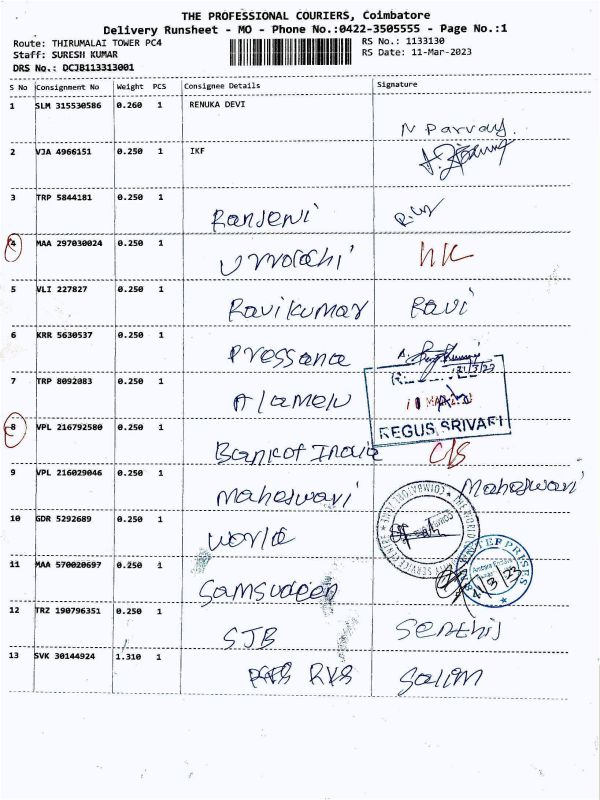 THE PROFESSIONAL COURIERS, Coimbatore
Delivery Runsheet - MO - Phone No.:0422-3505555 - Page No.:1
Route: THIRUMALAI TOWER PC4 RS No.: 1133130
Staff: SURESH KUMAR RS Date: 11-Mar-2023
DRS No.: DCJB113313001
S No Consignment No Weight PCS Consignee Details Signature
1 SLM 315530586 0.260 1 RENUKA DEVI
N Parvathy
2 VJA 4966151 0.250 1 IKF
3 TRP 5844181 0.250 1
Ranjeni
4 MAA 297030024 0.250 1
NK
5 VLI 227827 0.250 1
Ravikumar Ravi
6 KRR 5630537 0.250 1
Pressana
7 TRP 8092083 0.250 1
Alamelu
REGUS SRIVARI
8 VPL 216792580 0.250 1
Bank of India C/S
9 VPL 216029046 0.250 1
Maheswari Maheswari
10 GDR 5292689 0.250 1
World
11 MAA 570020697 0.250 1
Samsudeen
12 TRZ 190796351 0.250 1
SJB Senthil
13 SVK 30144924 1.310 1
RVS Salim